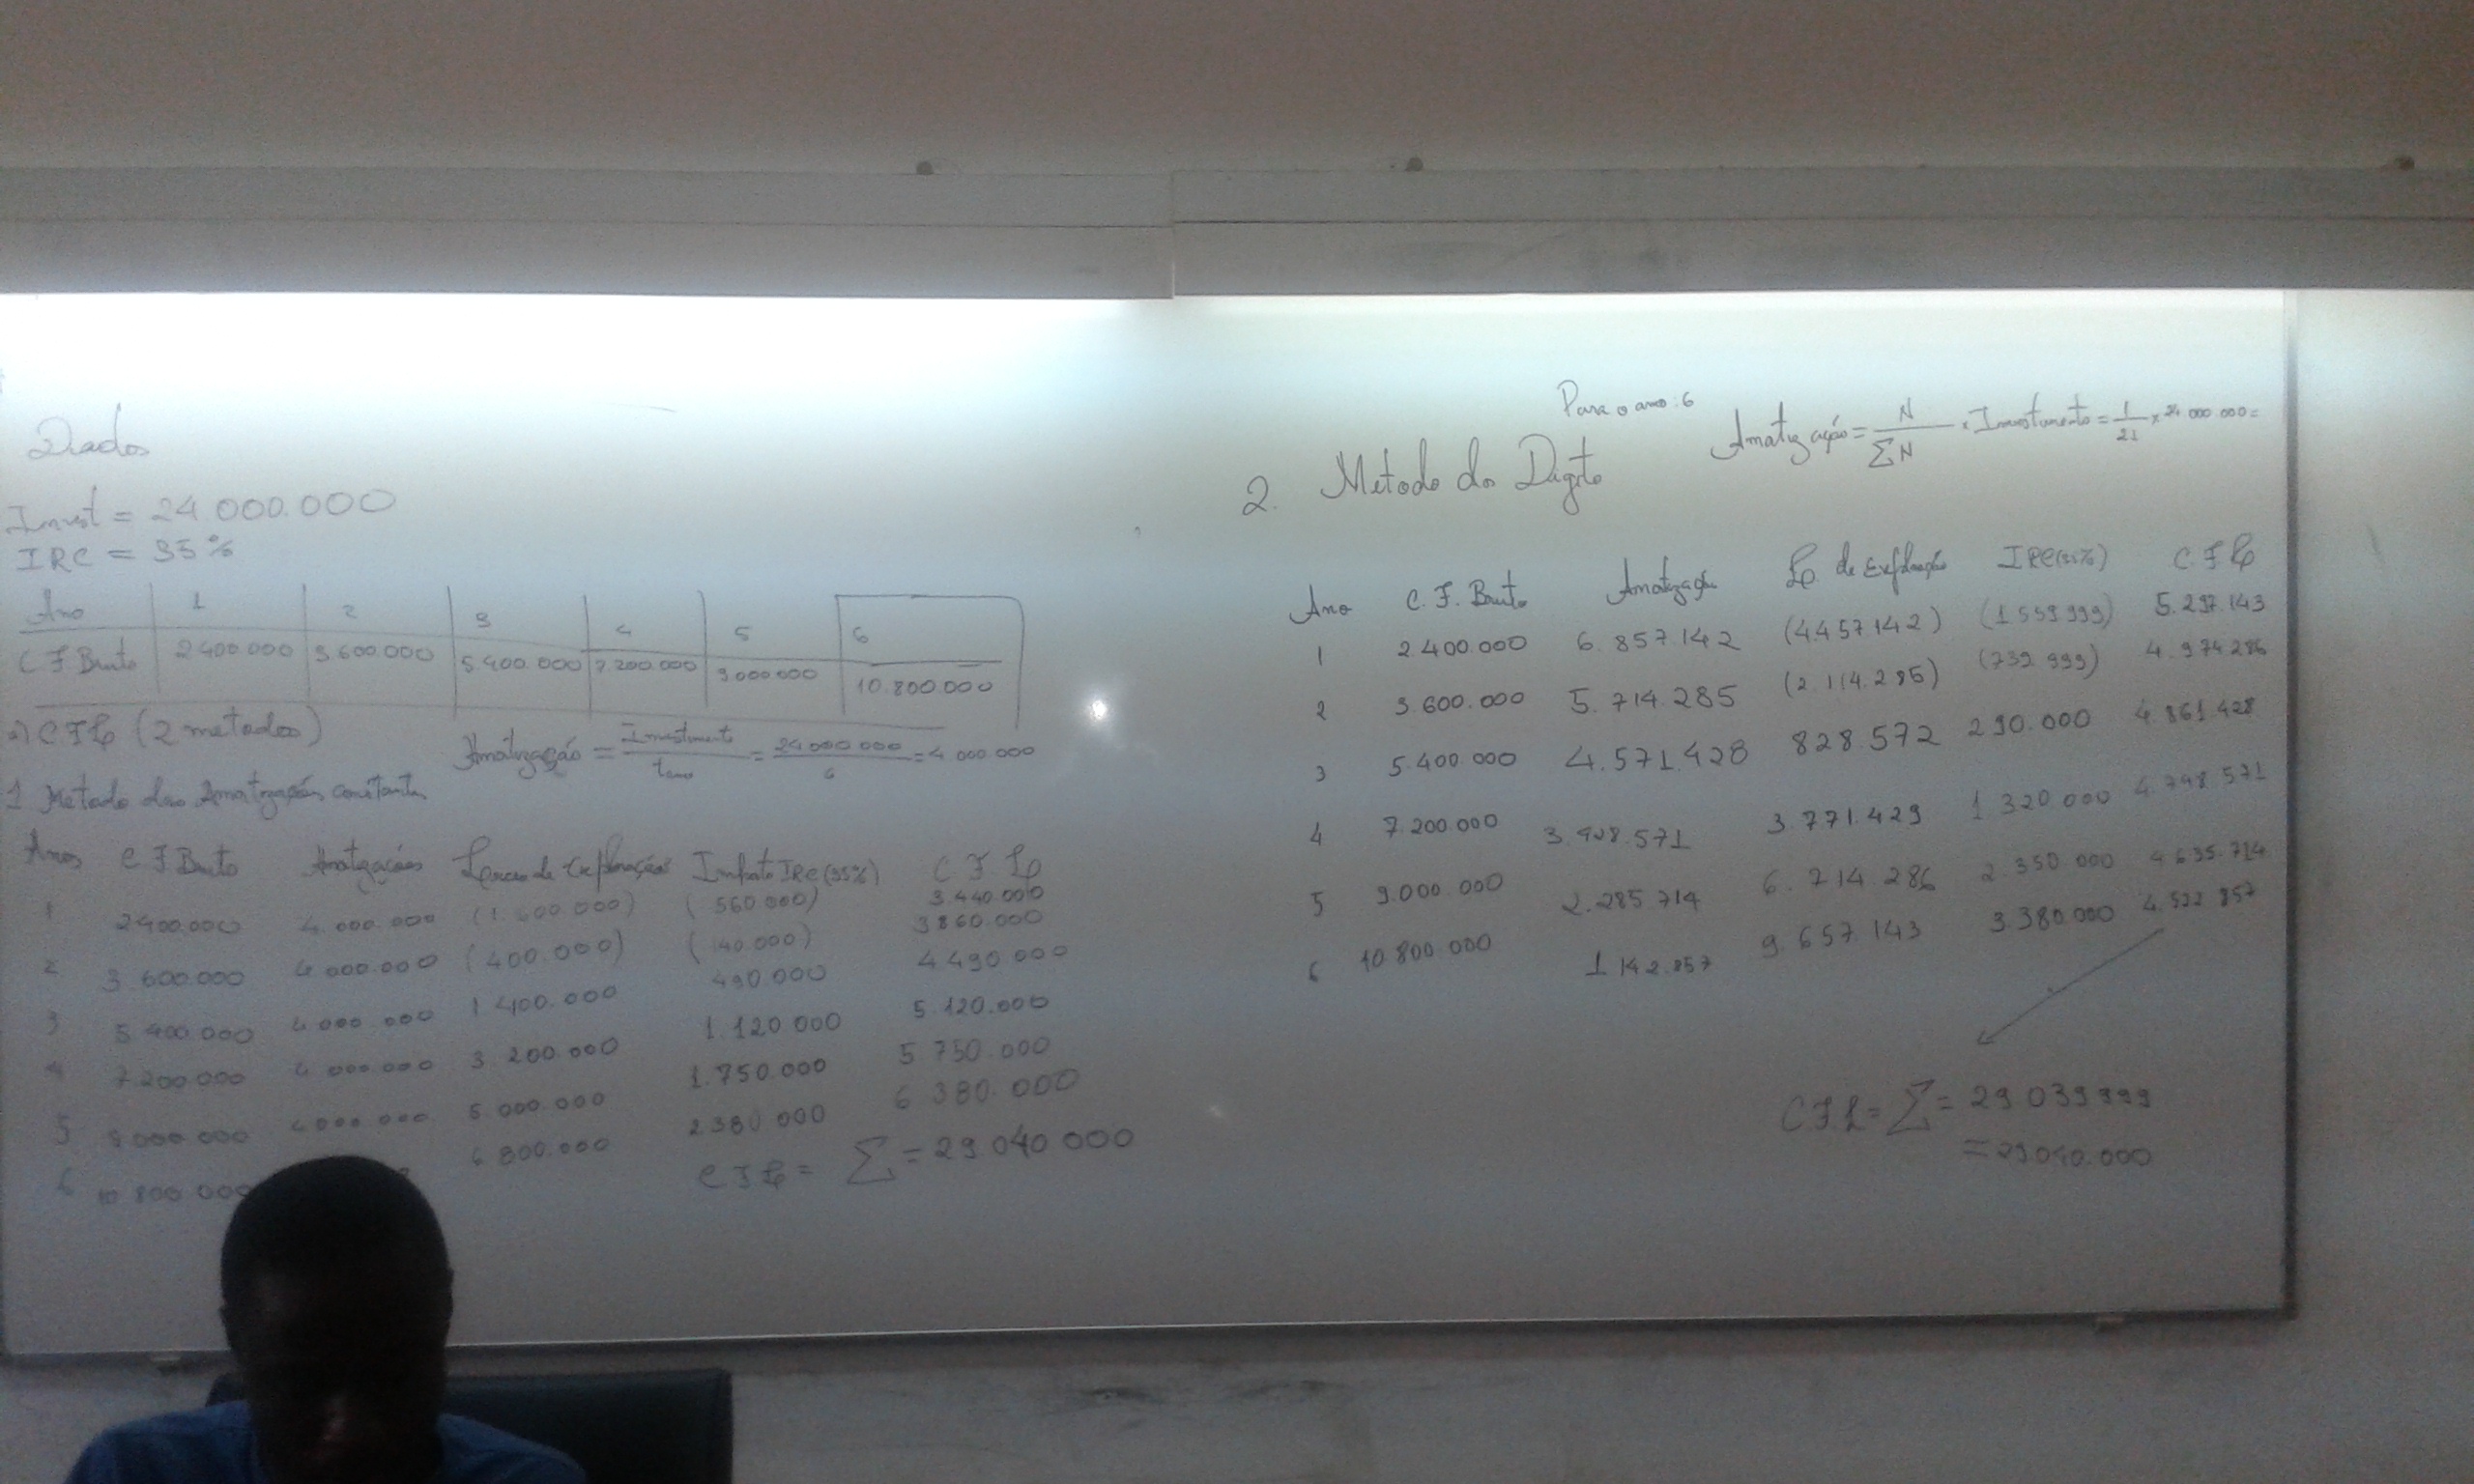 Dados
Invest = 24 000.000
IRC = 35%
Ano 1 2 3 4 5 6
C F Bruto 2 400 000 3 600 000 5.400.000 7.200.000 9 000 000 10.800.000
a) C F L (2 metodos)
Amotização = Investimento / t ano = 24 000 000 / 6 = 4 000.000
1 Metodo das Amotizações constantes
Anos C F Bruto Amotizações L de Exploração Imposto IRC (35%) C F L
1 2400.000 4.000.000 (1.600 000) (560 000) 3.440.000
2 3 600.000 4 000.000 (400.000) (140.000) 3 860.000
3 5 400 000 4 000 000 1 400.000 490.000 4 490 000
4 7 200 000 4 000 000 3 200.000 1.120 000 5 120.000
5 9 000 000 4 000 000 5 000 000 1.750.000 5 750.000
6 10 800 000 6 800.000 2 380 000 6 380.000
C F L = Σ = 29 040 000
Para o ano: 6
2. Metodo do Digito
Amotização = N / ΣN × Investimento = 1 / 21 × 24 000 000 =
Ano C.F. Bruto Amotização L de Exploração IRC (35%) C F L
1 2 400.000 6.857.142 (4.457 142) (1 559 999) 5.297.143
2 3 600.000 5.714.285 (2.114.285) (739 999) 4.974 286
3 5.400 000 4.571.428 828.572 290.000 4.861.428
4 7.200 000 3.428.571 3.771.429 1 320 000 4.748.571
5 9.000.000 2.285 714 6.714 286 2.350 000 4 635.714
6 10 800 000 1 142.857 9.657.143 3.380.000 4.522 857
C F L = Σ = 29 039 999
= 29 040.000